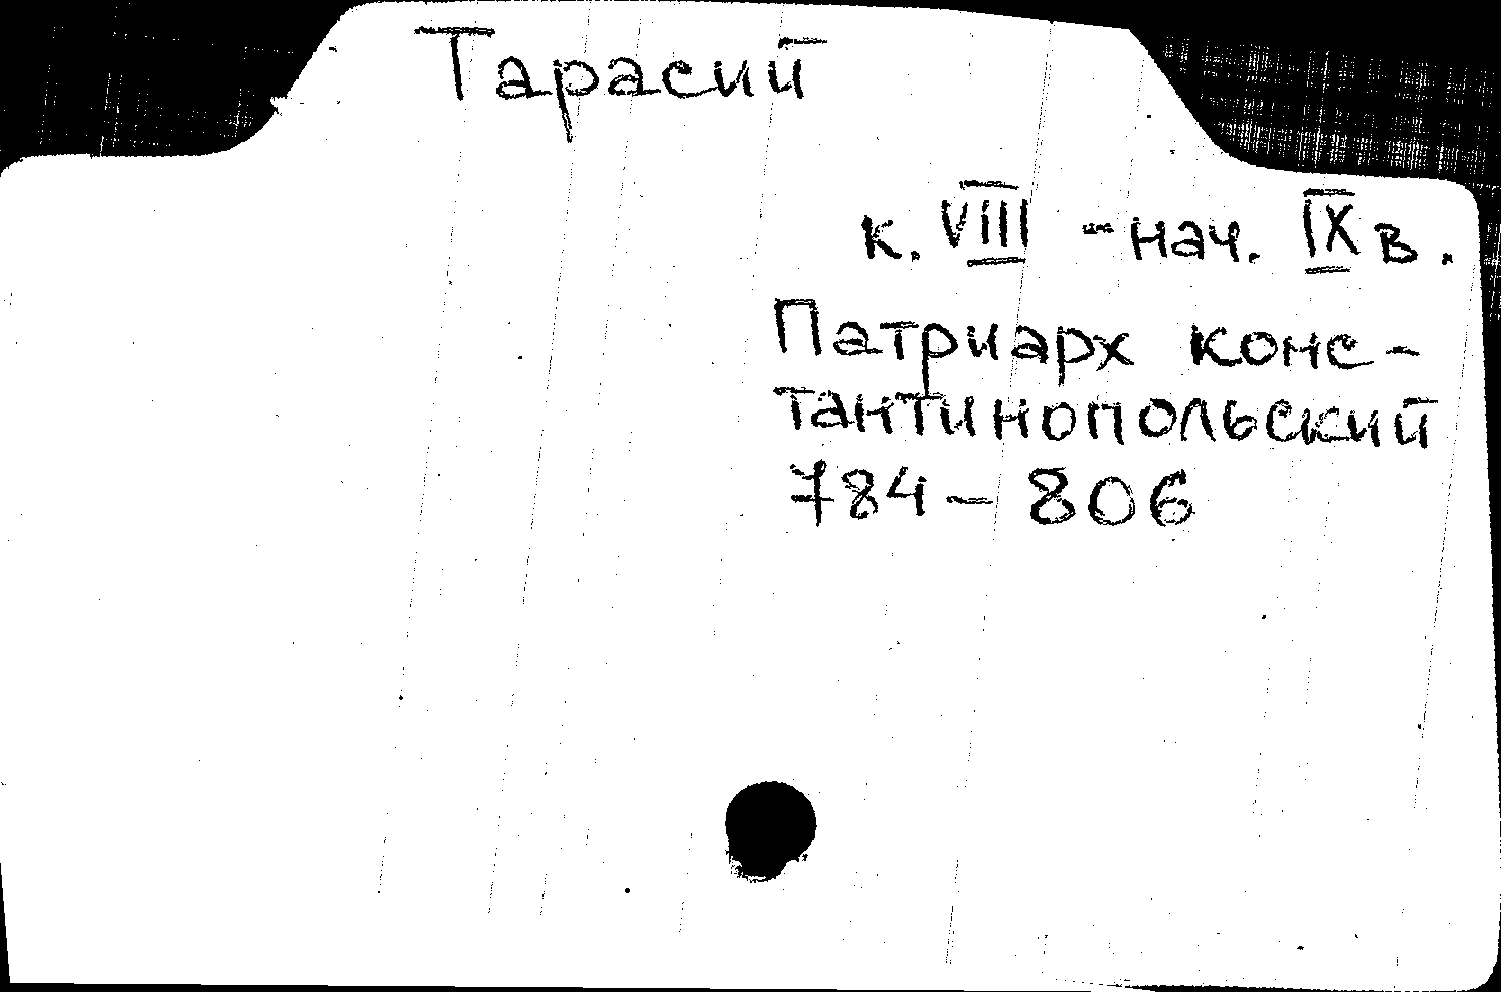 Тарасий
к. VIII - нач. IX в.
Патриарх конс-
тантинопольский
784 – 806